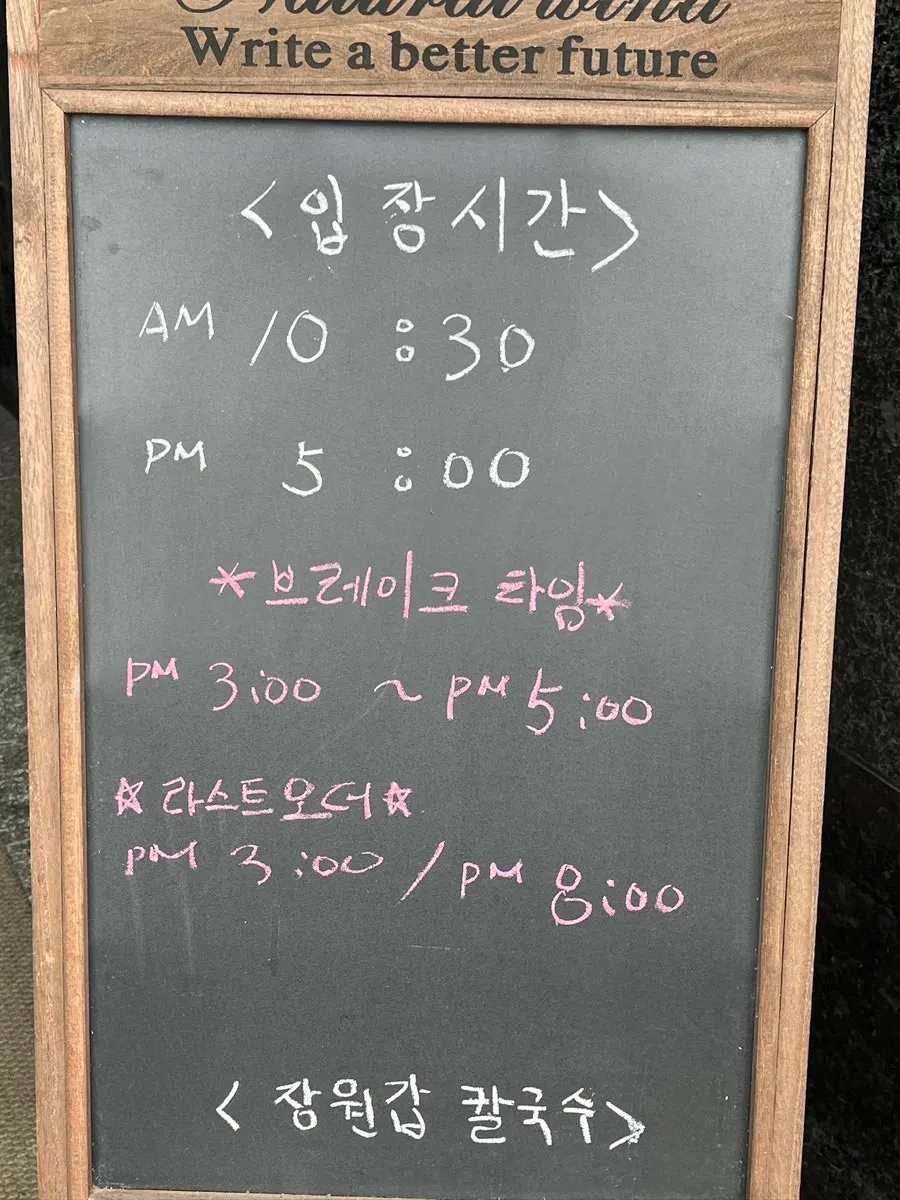 Natural wind
Write a better future
<입장시간>
AM 10:30
PM 5:00
*브레이크 타임*
PM 3:00 ~ PM 5:00
☆라스트오더☆
PM 3:00 / PM 8:00
<장원갑 칼국수>